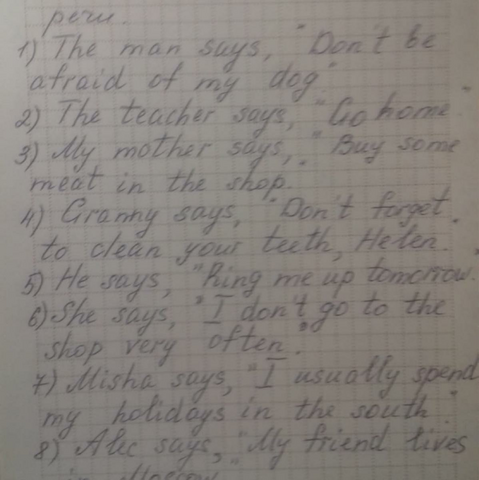 речи.
1) The man says, "Don't be
afraid of my dog"
2) The teacher says, "Go home."
3) My mother says, "Buy some
meat in the shop."
4) Granny says, "Don't forget
to clean your teeth, Helen."
5) He says, "Ring me up tomorrow."
6) She says, "I don't go to the
shop very often."
7) Misha says, "I usually spend
my holidays in the south."
8) Alec says, "My friend lives
in Moscow."